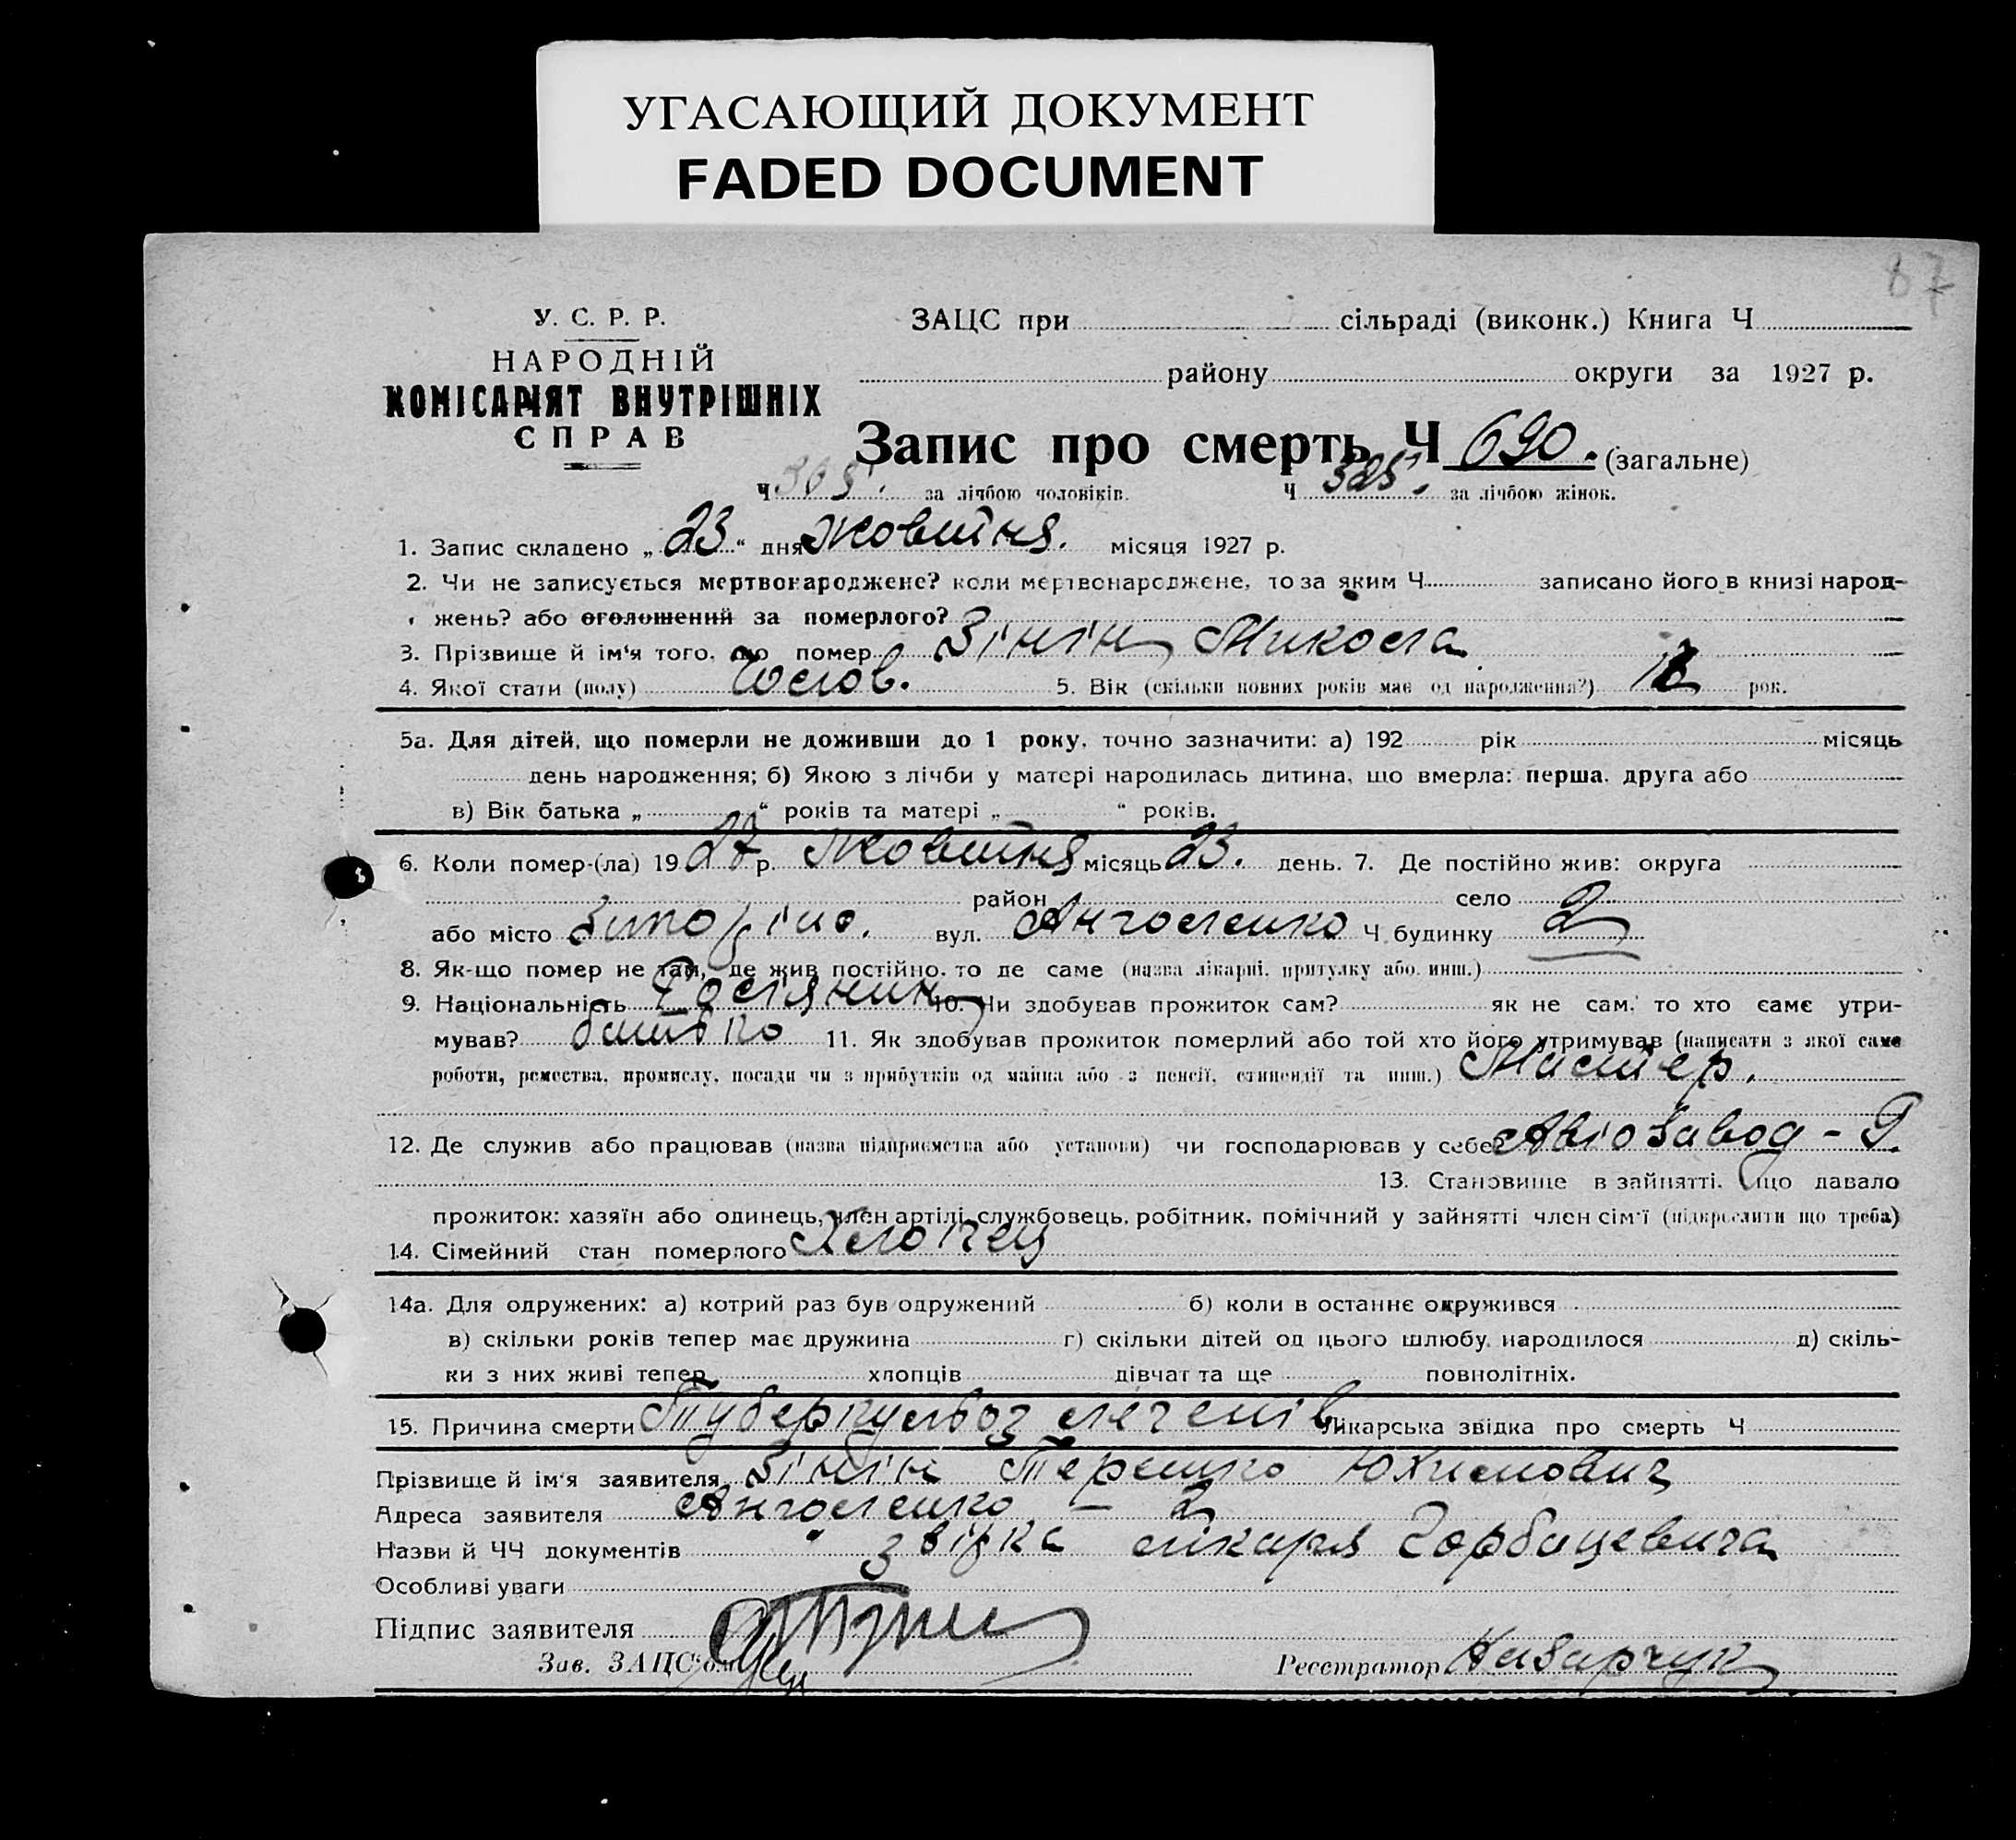 УГАСАЮЩИЙ ДОКУМЕНТ
FADED DOCUMENT
87
У. С. Р. Р.
НАРОДНІЙ
КОМІСАРІЯТ ВНУТРІШНІХ
СПРАВ
ЗАЦС при сільраді (виконк.) Книга Ч
району округи за 1927 р.
Запис про смерть Ч 690. (загальне)
Ч 365. за лічбою чоловіків. Ч 325. за лічбою жінок.
1. Запис складено „ 23 “ дня Жовтня. місяця 1927 р.
2. Чи не записується мертвонароджене? коли мертвонароджене, то за яким Ч. записано його в книзі народ-
жень? або оголошений за померлого?
3. Прізвище й ім'я того, що помер Зінін Микола
4. Якої стати (полу) Чолов. 5. Вік (скільки повних років має од народження?) рок.
5а. Для дітей, що померли не доживши до 1 року, точно зазначити: а) 192 рік місяць
день народження; б) Якою з лічби у матері народилась дитина, що вмерла: перша, друга або
в) Вік батька „ “ років та матері „ “ років.
6. Коли помер-(ла) 19 27 р. Жовтня місяць 23. день. 7. Де постійно жив: округа
район село
або місто вул. Анголенко Ч. будинку 2
8. Як-що помер не там, де жив постійно, то де саме (назва лікарні, притулку або инш.)
9. Національність Росіянин 10. Чи здобував прожиток сам? як не сам, то хто саме утри-
мував? батько 11. Як здобував прожиток померлий або той хто його утримував (написати з якої саме
роботи, ремества, промислу, посади чи з прибутків од майна або з пенсії, стипендії та инш.) Мистер.
12. Де служив або працював (назва підприємства або установи) чи господарював у себе? Авіозавод - 9
13. Становище в зайнятті, що давало
прожиток: хазяїн або одинець, член артілі, службовець, робітник, помічний у зайнятті член сім'ї (підкреслити що треба)
14. Сімейний стан померлого Хлопец
14а. Для одружених: а) котрий раз був одружений б) коли в останнє одружився
в) скільки років тепер має дружина г) скільки дітей од цього шлюбу народилося д) скіль-
ки з них живі тепер хлопців дівчат та ще повнолітніх.
15. Причина смерти Туберкульоз легенів Лікарська звідка про смерть Ч
Прізвище й ім'я заявителя Зінін Терешко Юхимович
Адреса заявителя Анголенко - 2
Назви й ЧЧ документів звідка лікаря Горбацевича
Особливі уваги
Підпис заявителя
Зав. ЗАЦС'ом Реєстратор Назарчук